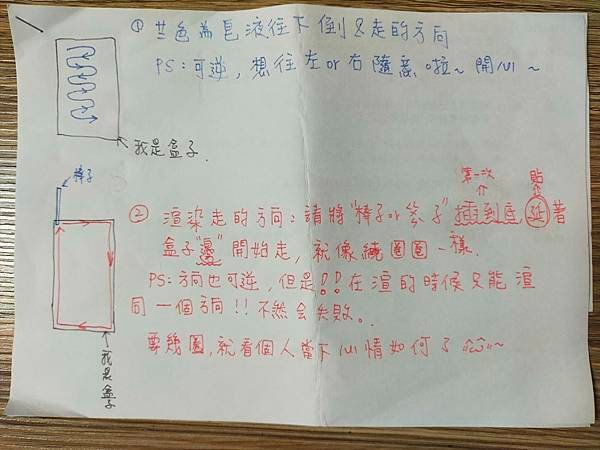 ① 藍色為皂液往下倒&走的方向
PS:可逆,想往左or右隨意啦~開心~
我是盒子.
棒子
第一次
貼
② 渲染走的方向:請將"棒子or筷子"插到底延著
盒子"邊"開始走,就像繞圈圈一樣.
PS:方向也可逆,但是!!在渲的時候只能渲
同一個方向!!不然会失敗。
要幾圈,就看個人當下心情如何了~
我是盒子